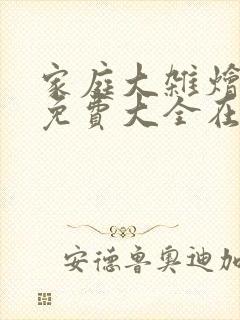 家庭大雑燴
免費大全在
安德魯奥迪加